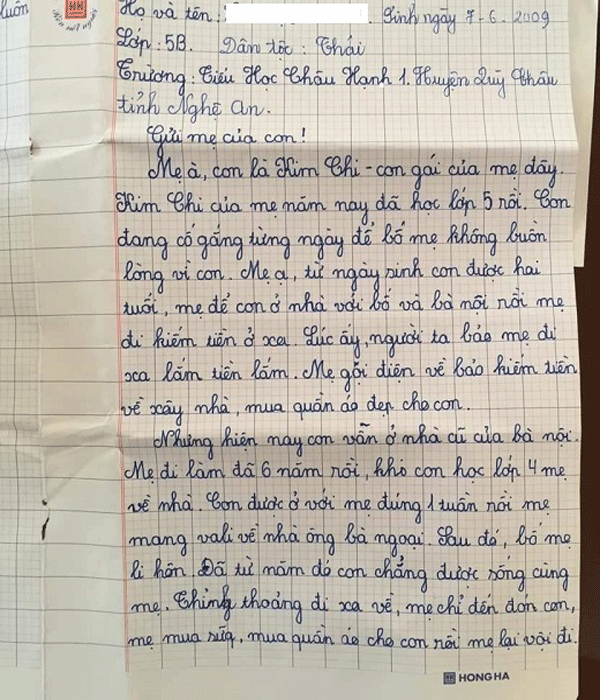 luôn
Nên nét người
Họ và tên : . Sinh ngày 7-6. 2009
Lớp : 5B. Dân tộc : Thái
Trường : Tiểu Học Châu Hạnh 1. Huyện Quỳ Châu
tỉnh Nghệ An.
Gửi mẹ của con !
Mẹ à, con là Kim Chi - con gái của mẹ đây.
Kim Chi của mẹ năm nay đã học lớp 5 rồi. Con
đang cố gắng từng ngày để bố mẹ không buồn
lòng vì con. Mẹ ạ, từ ngày sinh con được hai
tuổi, mẹ để con ở nhà với bố và bà nội rồi mẹ
đi kiếm tiền ở xa. Lúc ấy, người ta bảo mẹ đi
xa lắm tiền lắm. Mẹ gọi điện về bảo kiếm tiền
về xây nhà, mua quần áo đẹp cho con.
Nhưng hiện nay con vẫn ở nhà cũ của bà nội.
Mẹ đi làm đã 6 năm rồi, khi con học lớp 4 mẹ
về nhà. Con được ở với mẹ đúng 1 tuần rồi mẹ
mang vali về nhà ông bà ngoại. Sau đó, bố mẹ
li hôn. Đã từ năm đó con chẳng được sống cùng
mẹ. Thỉnh thoảng đi xa về, mẹ chỉ đến đón con,
mẹ mua sữa, mua quần áo cho con rồi mẹ lại vội đi.
HONG HA